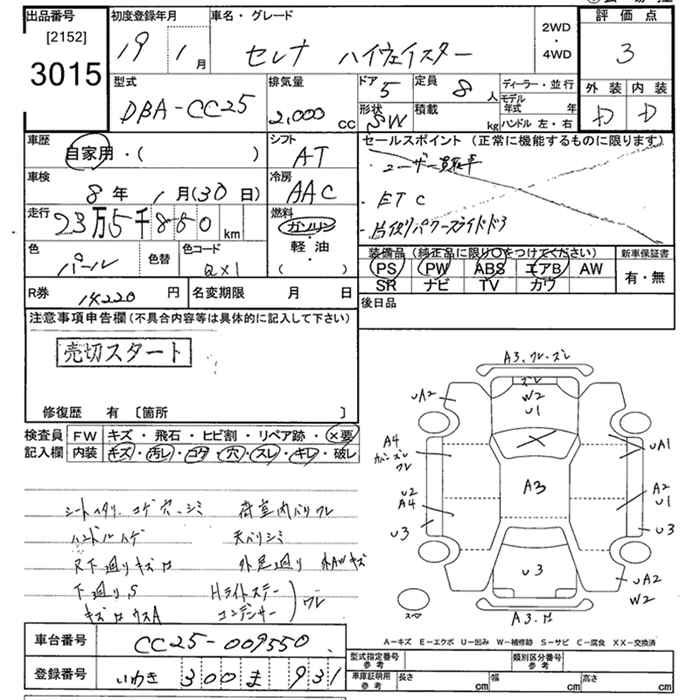 出品番号 初度登録年月 車名・グレード 評価点
[2152]
3015
19 1 月 セレナ ハイウェイスター 2WD・4WD 3
型式 排気量 ドア 5 定員 8 人 ディーラー・並行 外装 内装
DBA-CC25 2,000 cc 形状 SW 積載 kg モデル年式 年 D D
ハンドル 左・右
車歴 自家用・( ) シフト AT セールスポイント (正常に機能するものに限ります)
ユーザー買取車
車検 8 年 1 月 (30 日) 冷房 AAC
ETC
走行 23万5千850 km 燃料 ガソリン・軽・油 ( )
片側パワースライドドア
色 パール 色替 色コード QX1
装備品 (純正品に限り○をつけてください) 新車保証書
PS PW ABS エアB AW 有・無
SR ナビ TV カワ
R券 14220 円 名変期限 月 日 後日品
注意事項申告欄 (不具合内容等は具体的に記入して下さい)
売切スタート
修復歴 有 〔箇所 〕
検査員 FW キズ・飛石・ヒビ割・リペア跡・×要
記入欄 内装 キズ・汚レ・コゲ・穴・スレ・キレ・破レ
A3.ワレ.ズレ
ズレ
W2
U1
UA2
A2
A4
ワレ
UA1
A3
U2
A4
A2
U1
U3
U3
U3
UA2
W2
A3.
コゲ 穴・シミ 荷室内バリワレ
ハンドルハゲ 天バリシミ
R下廻りキズ 外足廻り 外AWキズ
下廻りS Hライトステー
コンデンサー ワレ
A-キズ E-エクボ U-凹み W-補修跡 S-サビ C-腐食 XX-交換済
車台番号 CC25-009550
登録番号 いわき 300 ま 931
型式指定番号 参考 類別区分番号 参考
車庫証明用 参考 長さ cm 幅 cm 高さ cm